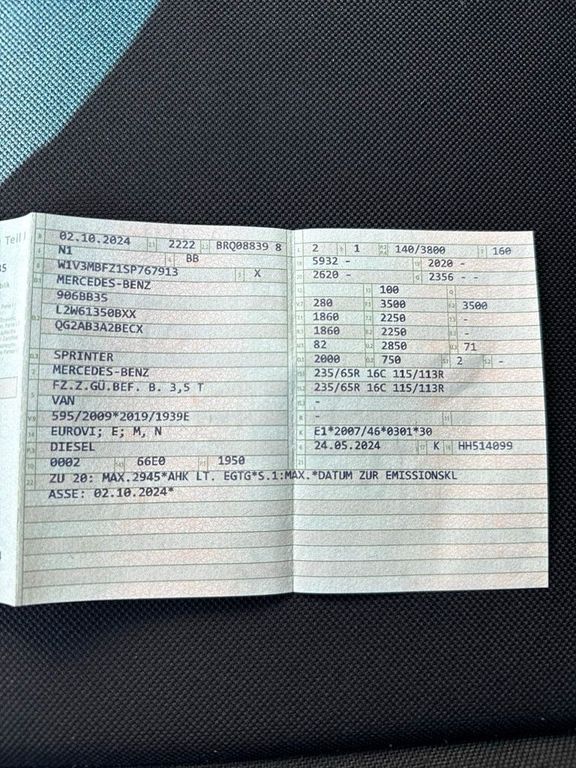 Teil I
02.10.2024 2222 BRQ08839 8
N1 BB
W1V3MBFZ1SP767913 X
MERCEDES-BENZ
906BB35
L2W61350BXX
QG2AB3A2BECX
SPRINTER
MERCEDES-BENZ
FZ.Z.GÜ.BEF. B. 3,5 T
VAN
595/2009*2019/1939E
EUROVI; E; M, N
DIESEL
0002 66E0 1950
ZU 20: MAX.2945*AHK LT. EGTG*S.1:MAX.*DATUM ZUR EMISSIONSKL
ASSE: 02.10.2024*
2 1 140/3800 160
5932 - 2020 -
2620 - 2356 - -
100
280 3500 3500
1860 2250 -
1860 2250 -
82 2850 71
2000 750 2 -
235/65R 16C 115/113R
235/65R 16C 115/113R
-
-
E1*2007/46*0301*30
24.05.2024 K HH514099